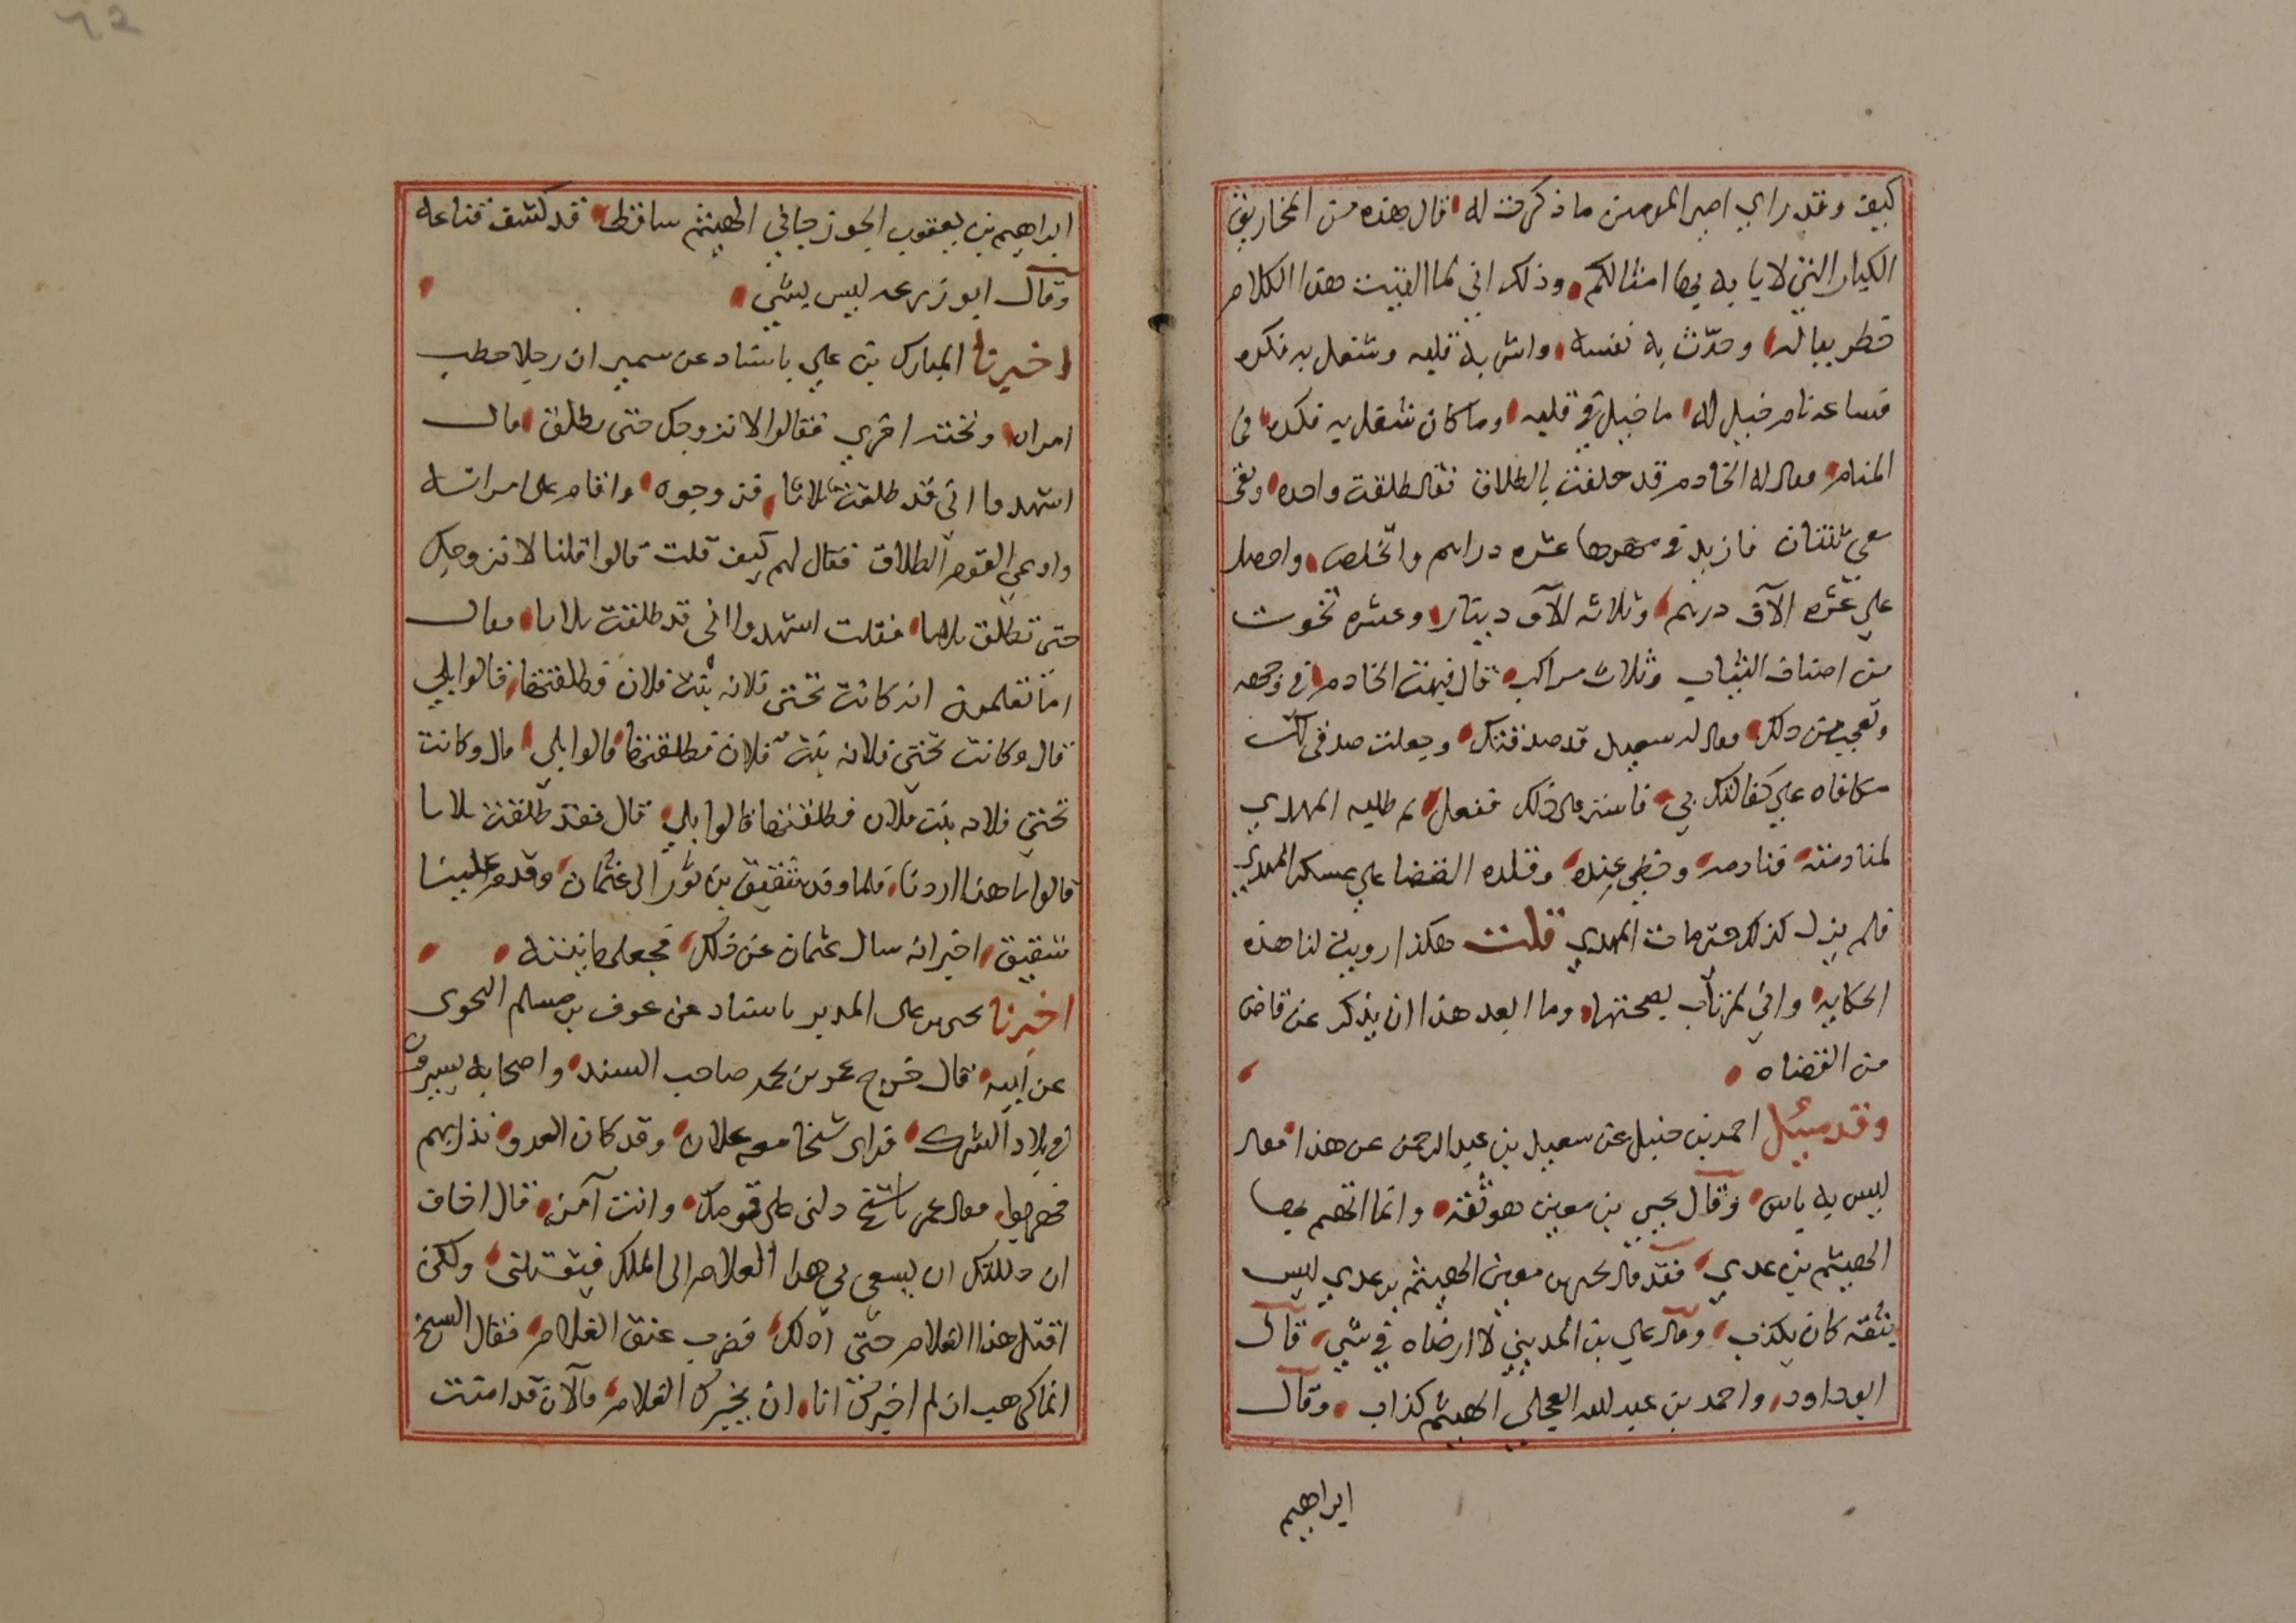 كيف وقد راي امير المومنين ما ذكرت له قال هذه من المخاريق
الكبار التي لا يابه بها امثالكم وذلك اني لما القيت هذا الكلام
خطر بباله وحدّث به نفسه واشربه قلبه وشغل به فكره
فساعه نام خيل له ما خيل في قلبه وما كان شغل به فكره في
المنام فقال له الخادم قد حلفت بالطلاق فقال طلقت واحده وبقي
معي ثنتان فازيد في مهرها عشره دراهم واتخلص واحصل
علي عشره الآف درهم وثلاثه الآف دينار وعشره تخوت
من اصناف الثياب وثلاث مراكب قال فبهت الخادم في وجهه
وتعجب من ذلك فقال له سعيد قد صدقتك وجعلت صدقي لك
مكافاه علي كفالتك بي فاستر علي ذلك ففعل ثم طلبه المهدي
لمنادمته فنادمه وحظي عنده وقلده القضا علي عسكر المهدي
فلم يزل كذلك حتى مات المهدي قلت هكذا رويت لنا هذه
الحكايه واني لمرتاب بصحتها وما ابعد هذا ان يذكر عن قاض
من القضاه
وقد سئيل احمد بن حنبل عن سعيد بن عبد الرحمن عن هذا فقال
ليس به باس وقال يحيي بن معين هو ثقه وانما اتهم بها
الهيثم بن عدي فقد قال يحيى بن معين الهيثم بن عدي ليس
بثقه كان يكذب وقال علي بن المديني لا ارضاه في شي قال
ابو داود واحمد بن عبد الله العجلي الهيثم كذاب وقال
ابراهيم
ابراهيم بن يعقوب الجوزجاني الهيثم ساقط قد كشف قناعه
وقال ابو زرعه ليس بشي
اخبرنا المبارك بن علي باسناد عن سمير ان رجلا خطب
امراه وتحته اخري فقالوا لا نزوجك حتى تطلق قال
اشهدوا اني قد طلقت ثلاثا فزوجوه واقام على امراته
وادعي القوم الطلاق فقال لهم كيف قلت قالوا قلنا لا نزوجك
حتى تطلق ثلاثا فقلت اشهدوا اني قد طلقت ثلاثا فقال
اما تعلمون انه كانت تحتي فلانه بنت فلان فطلقتها قالوا بلي
قال وكانت تحتي فلانه بنت فلان فطلقتها قالوا بلي قال وكانت
تحتي فلانه بنت فلان فطلقتها قالوا بلي قال فقد طلقت ثلاثا
قالوا ما هذا اردنا فلما وفد شقيق بن ثور الى عثمان وقدم علينا
شقيق اخبر انه سال عثمان عن ذلك فجعلها بنيته
اخبرنا يحيى بن على المدير باسناد عن عوف بن مسلم النحوى
عن ابيه قال خرج عمر بن محمد صاحب السند واصحابه يسيرون
في بلاد الشرك فراى شيخا معه غلام وقد كان العدو نذر بهم
فهربوا فقال عمر يا شيخ دلني على قومك وانت آمن قال اخاف
ان دللتك ان يسعى بي هذا الغلام الى الملك فيقتلني ولكن
اقتل هذا الغلام حتى ادلك فضرب عنق الغلام فقال الشيخ
انما كرهت ان لم اخبرك انا ان يخبرك الغلام فالآن قد امنت